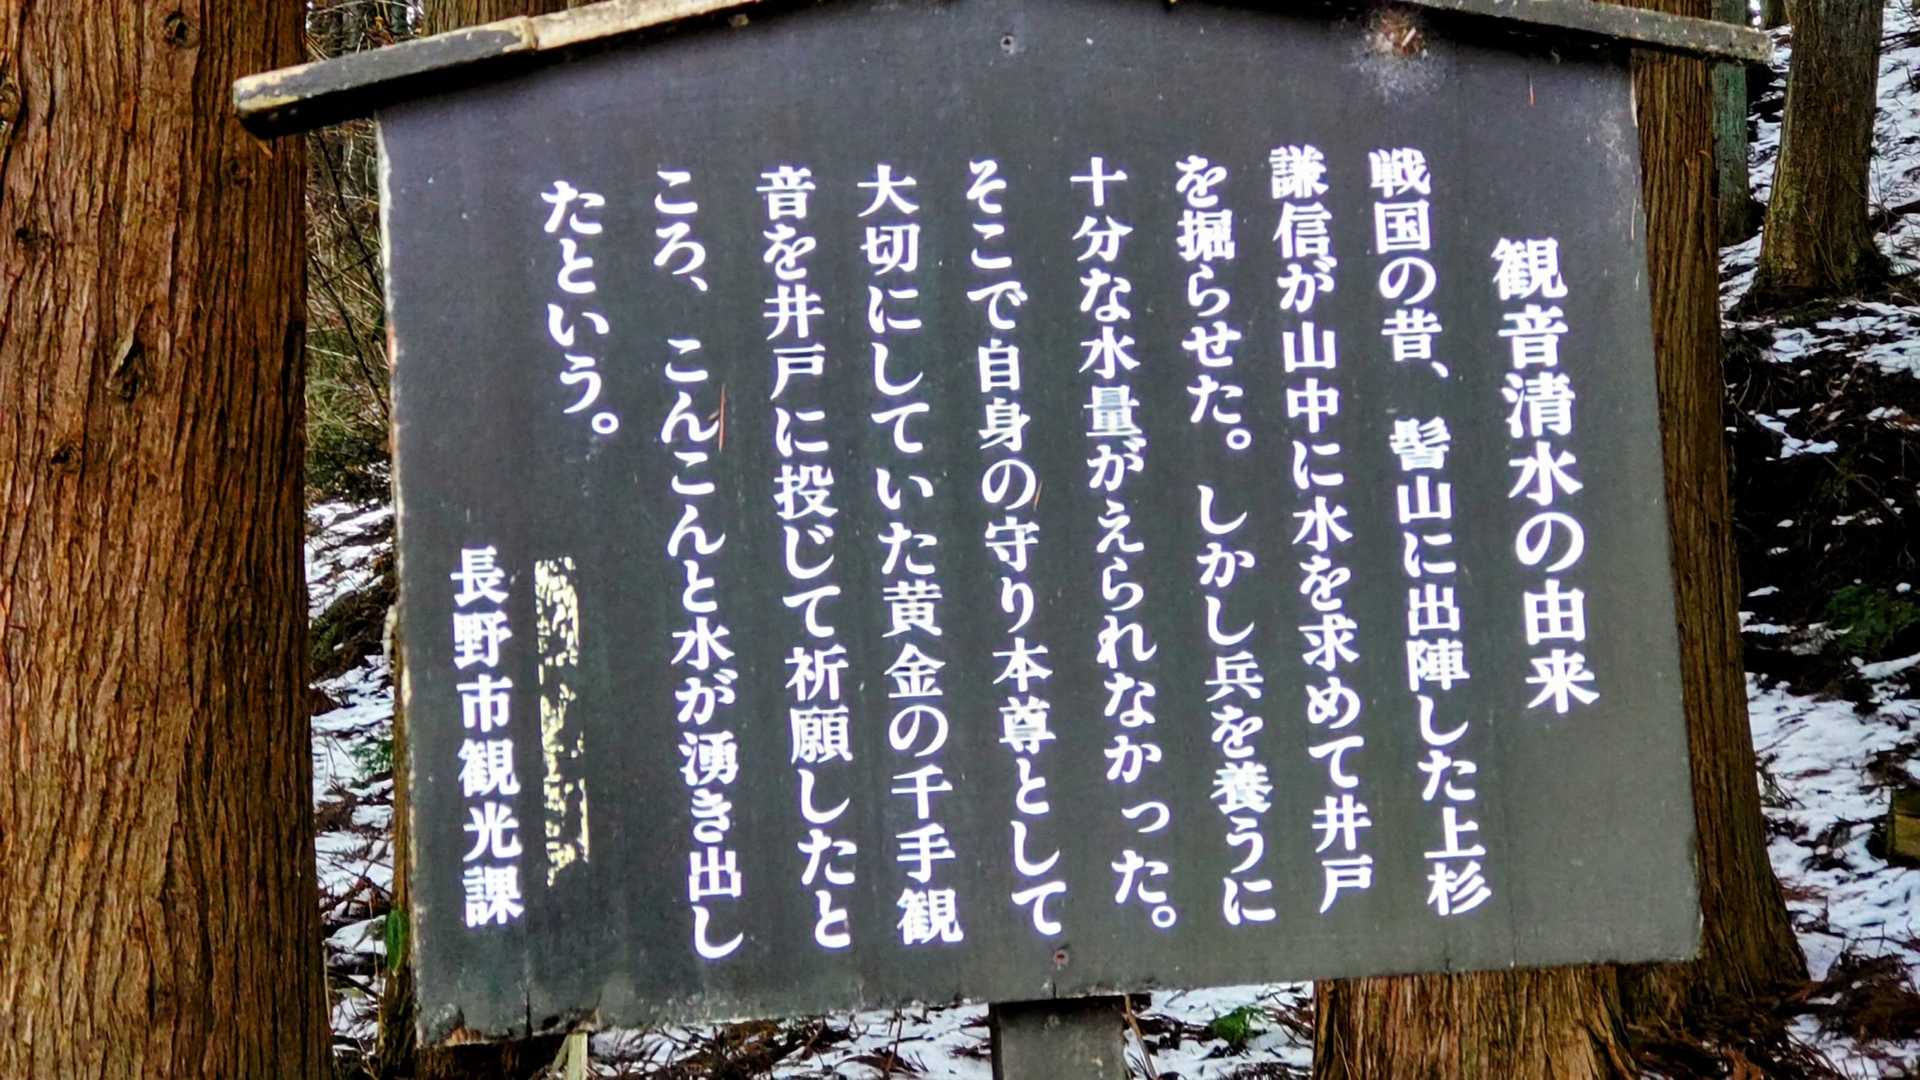 観音清水の由来
戦国の昔、髻山に出陣した上杉
謙信が山中に水を求めて井戸
を掘らせた。しかし兵を養うに
十分な水量がえられなかった。
そこで自身の守り本尊として
大切にしていた黄金の千手観
音を井戸に投じて祈願したと
ころ、こんこんと水が湧き出し
たという。
長野市観光課